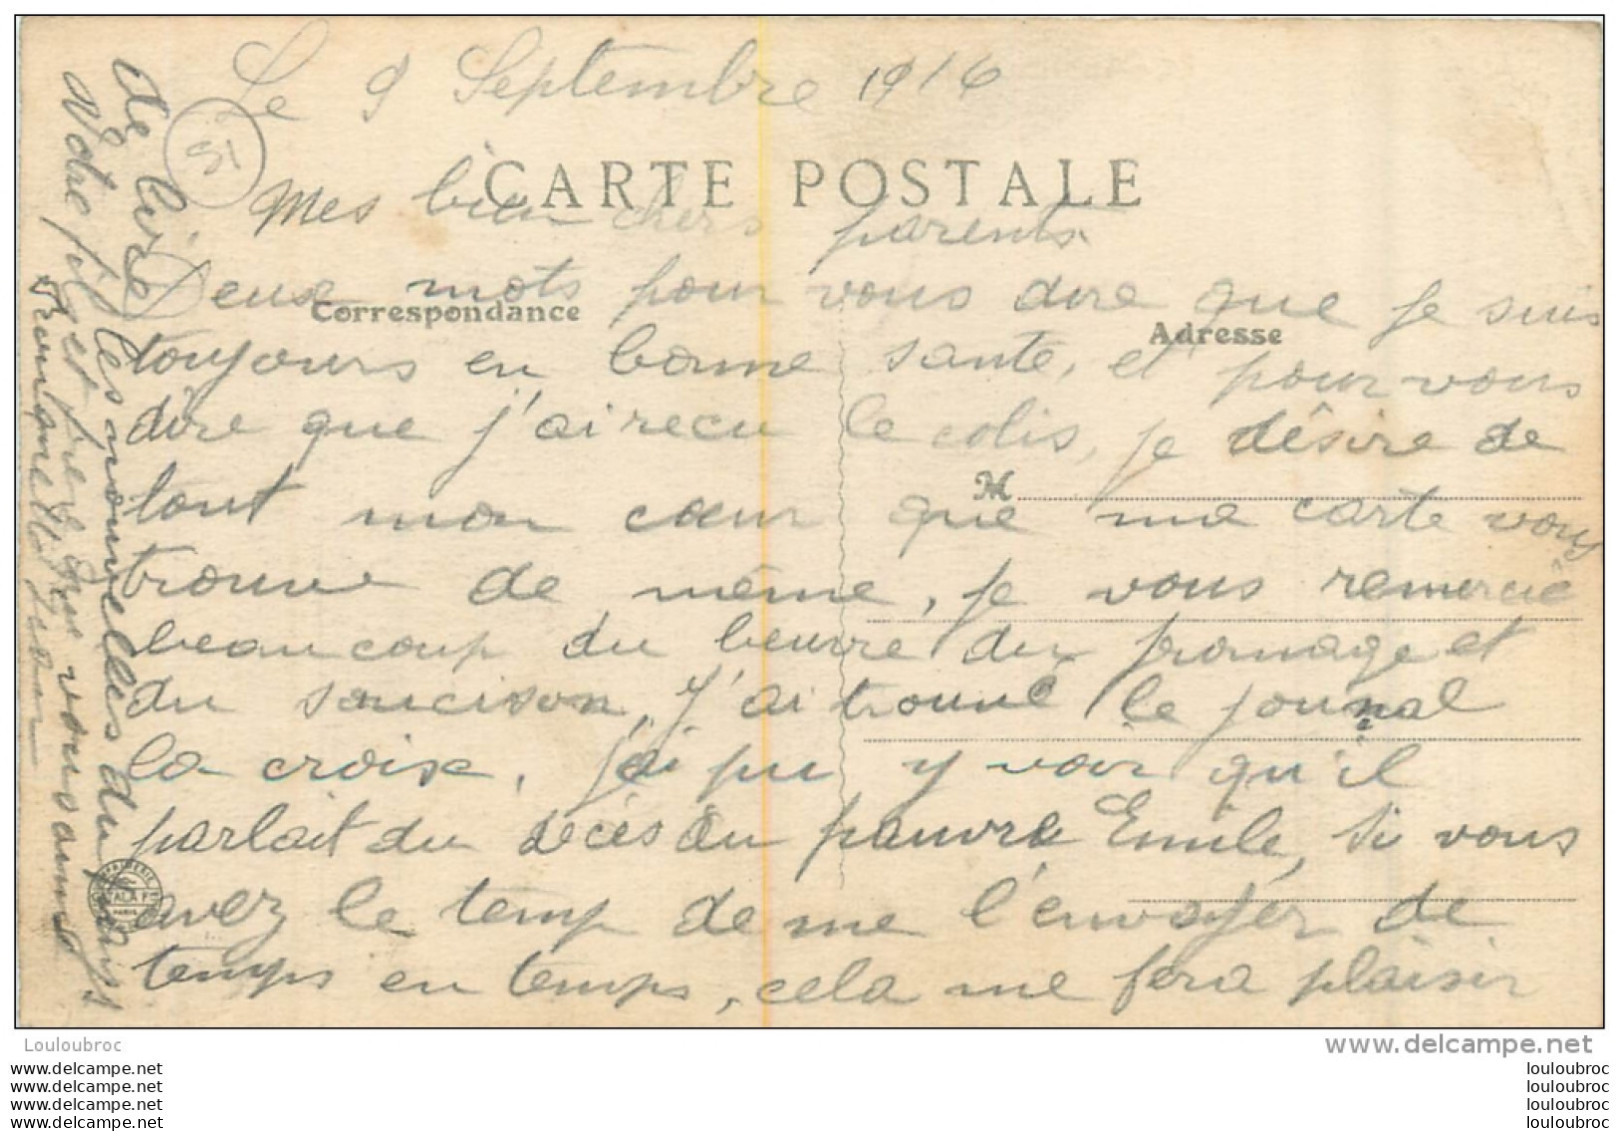 Le 9 Septembre 1916
51
CARTE POSTALE
Mes bien chers parents
Correspondance
Adresse
M
Deux mots pour vous dire que je suis
toujours en bonne santé, et pour vous
dire que j'ai recu le colis, je désire de
tout mon cœur que ma carte vous
trouve de même, je vous remercie
beaucoup du beurre du fromage et
du soucison, J'ai trouvé le journal
la croix, j'ai pu y voir qu'il
parlait du décès du pauvre Emile, si vous
avez le temp de me l'envoyer de
temps en temps, cela me fera plaisir
de lire les nouvelles du pays
Votre fils et frère que vous aime
Louloubroc
www.delcampe.net
louloubroc
louloubroc
louloubroc
louloubroc
www.delcampe.net
www.delcampe.net
www.delcampe.net
www.delcampe.net